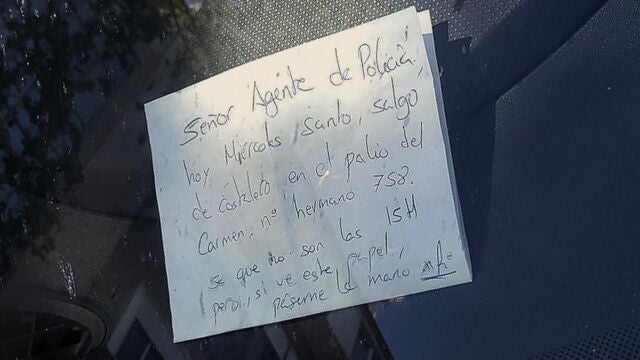 Señor Agente de Policía:
hoy, Miércoles Santo, salgo
de Costalero en el palio del
Carmen, nº hermano 758.
se que no son las 15H
pero, si ve este papel,
páseme la mano